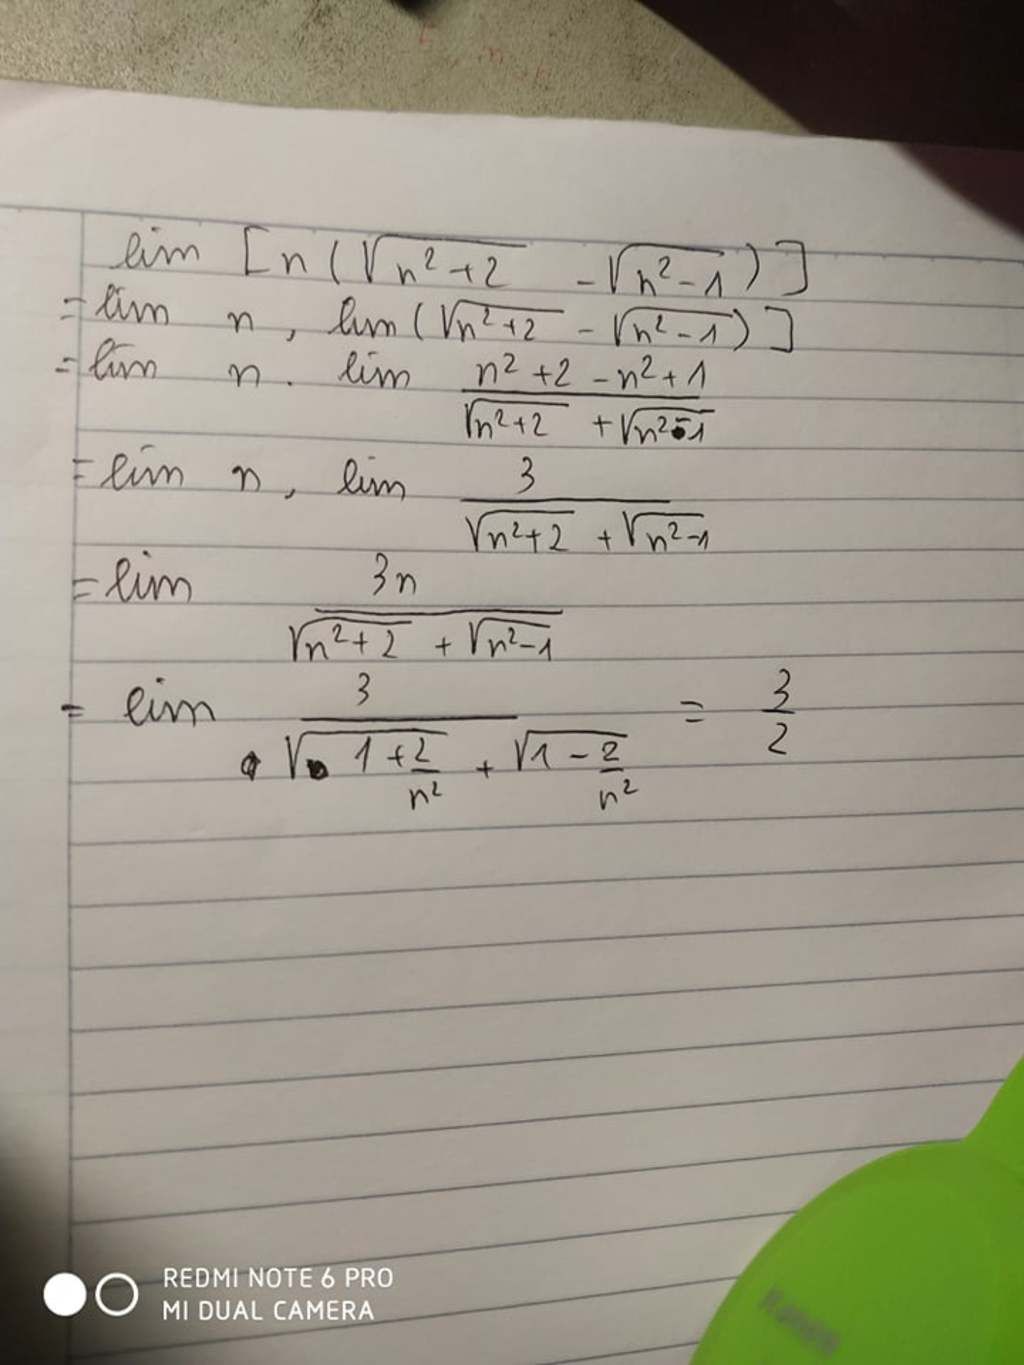 lim [n(√(n²+2) - √(n²-1))]
= lim n, lim(√(n²+2) - √(n²-1))]
= lim n. lim (n²+2-n²+1)/(√(n²+2) + √(n²-1))
= lim n, lim 3/(√(n²+2) + √(n²-1))
= lim 3n/(√(n²+2) + √(n²-1))
= lim 3/(√(1+2/n²) + √(1-2/n²)) = 3/2
REDMI NOTE 6 PRO
MI DUAL CAMERA